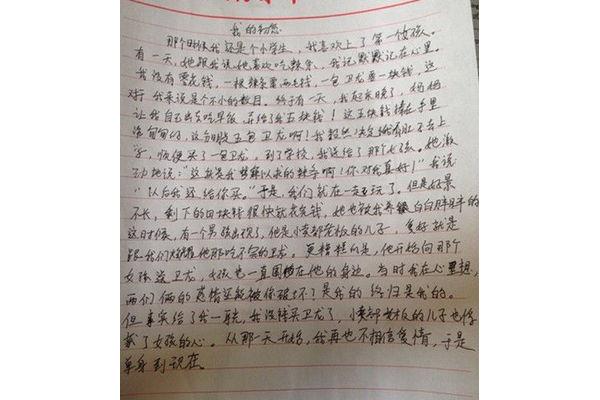 我的初恋
那个时候我还是个小学生，我喜欢上了第一个女孩。
有一天，她跟我说她喜欢吃辣条，我记默默记在心里。
我没有零花钱，一根辣条要两毛钱，一包卫龙要一块钱，这
对于我来说是个不小的数目。终于有一天，我起床晚了，妈妈
让我自己出去吃早饭，并给了我五块钱！这五块钱捧在手里
沉甸甸的，这分明是五包卫龙啊！我毅然决然饿着肚子去上
学，顺便买了一包卫龙，到了学校，我送给了那个女孩。她激
动地说："这就是我梦寐以求的辣条啊！你对我真好！"我说：
"以后我还给你买。"于是，我们就在一起玩了。但是好景
不长，剩下的四块钱很快就花完，她也被我养得白白胖胖的
这时候，有一个男孩出现了，他是小卖部老板的儿子，爱好就是
跟我们炫耀他那吃不完的卫龙。更糟糕的是，他开始向那个
女孩送卫龙，女孩也一直围绕在他的身边。当时我在心里想，
我们俩的感情岂能被你破坏？是我的终归是我的。
但事实给了我一耳光，我没钱买卫龙了，小卖部老板的儿子也俘
获了女孩的心。从那一天开始，我再也不相信爱情，于是
单身到现在。